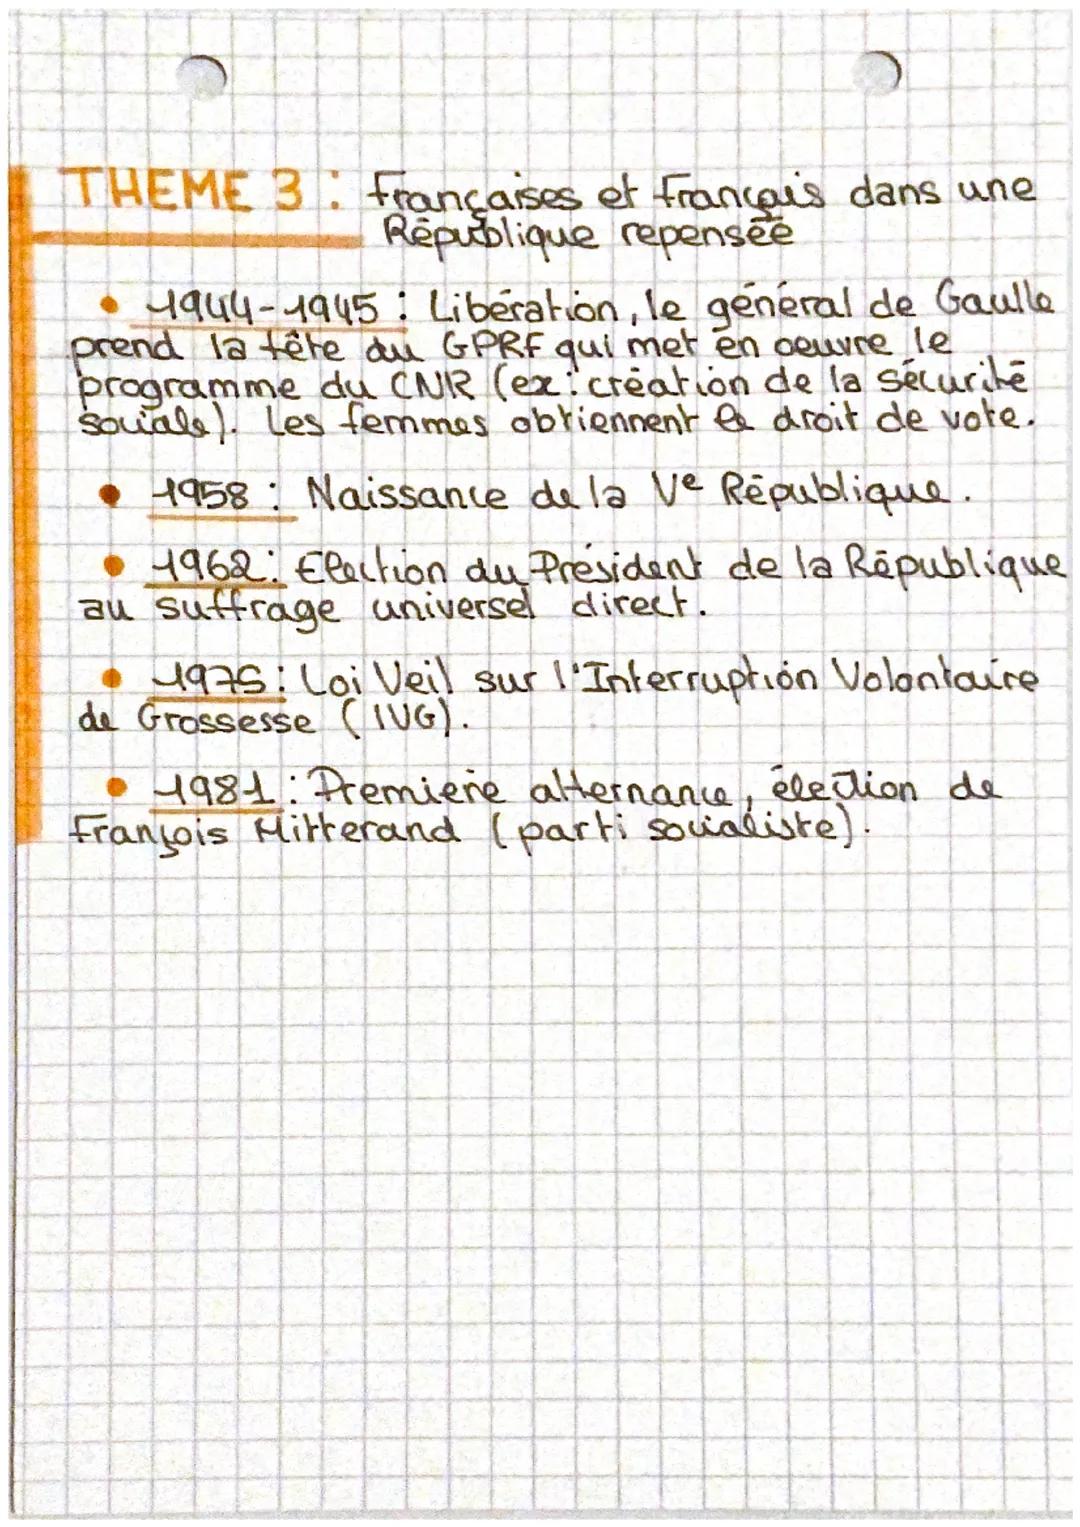 THEME 3 : Françaises et Français dans une
République repensée
• 1944-1945 : Libération, le général de Gaulle
prend la tête du GPRF qui met en oeuvre le
programme du CNR (ex : création de la sécurité
sociale). Les femmes obtiennent le droit de vote.
• 1958 : Naissance de la Ve République.
• 1962 : Election du Président de la République
au suffrage universel direct.
• 1975 : Loi Veil sur l'Interruption Volontaire
de Grossesse (IVG).
• 1981 : Première alternance, élection de
François Mitterand (parti socialiste).